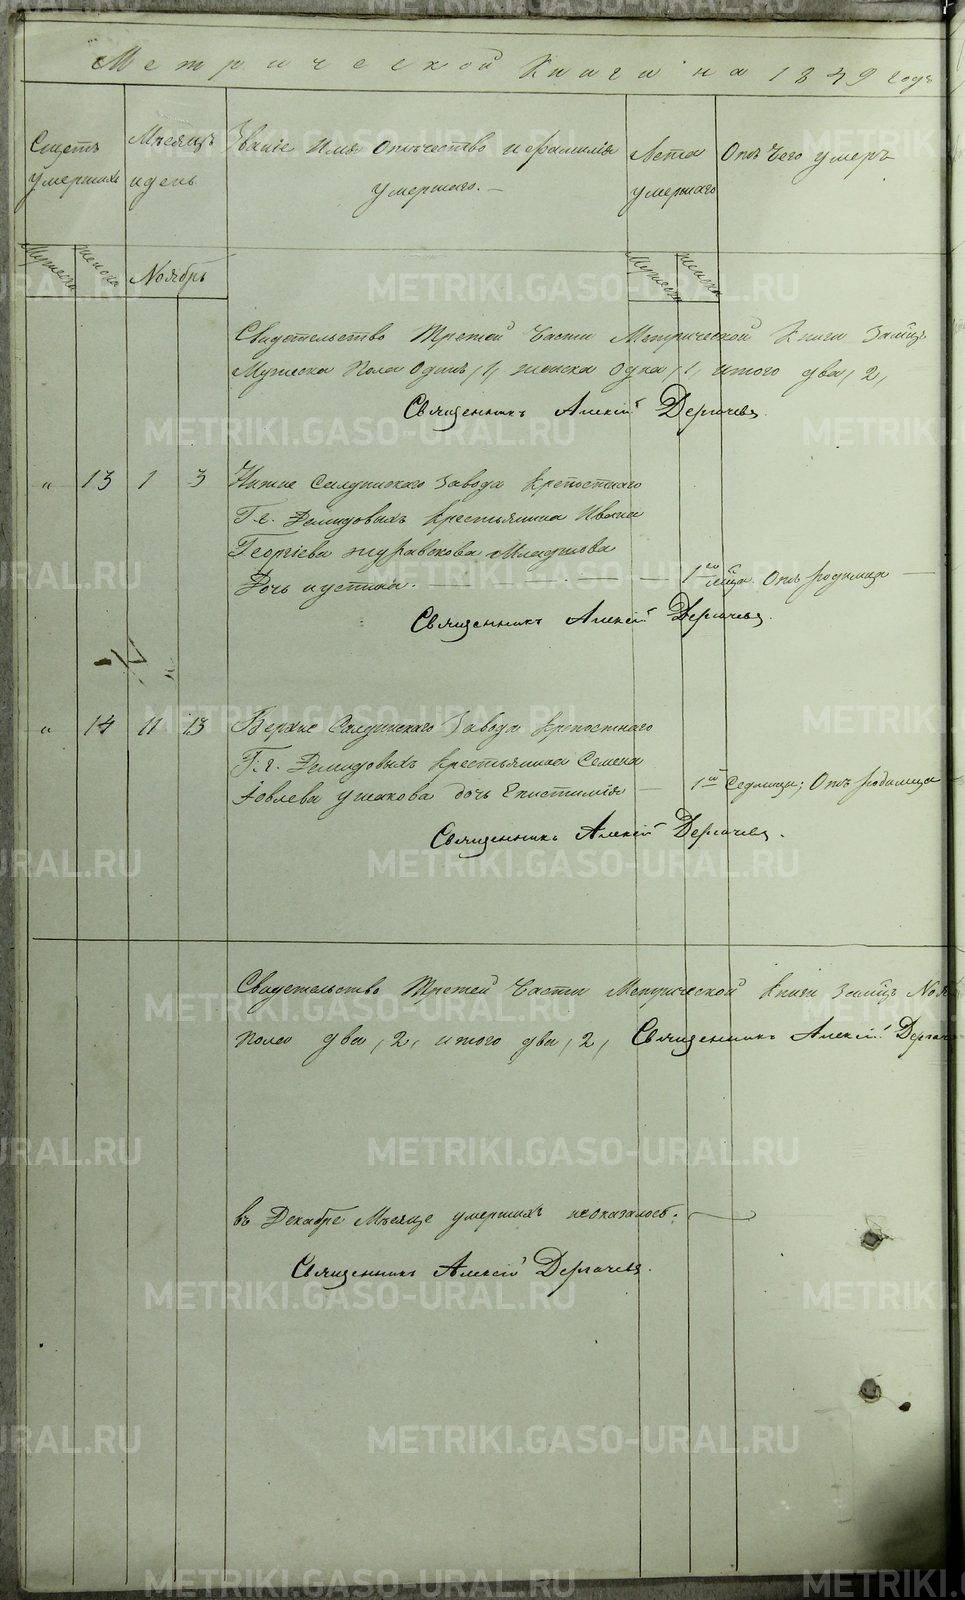 Метрической Книги на 1849 годъ
Счетъ умершихъ
Мѣсяцъ и день
Званіе Имя Отчество и фамилія умершаго.
Лета умершаго
Отъ Чего умеръ
Мужеска
женска
Ноябрь
Мужеска
женска
Свидетельство Третей Части Метрической Книги
Мужеска Пола Одинъ, 1, женска Одна, 1, итого два, 2,
Священникъ Алексій Дергачевъ.
" 13 1 3 Нижне Салдинскаго Завода Крепостнаго
Г.г. Демидовыхъ Крестьянина Ивана
Георгіева Журавкова Младшова
Дочь Иустина. — 1го мѣца. Отъ родимца —
Священникъ Алексій Дергачевъ.
" 14 11 13 Верхне Салдинскаго Завода Крепостнаго
Г.г. Демидовыхъ Крестьянина Семена
Іовлева Ушакова дочь Епистимія — 1й Седмицы; Отъ родимца
Священникъ Алексій Дергачевъ.
Свидетельство Третей Части Метрической Книги
Пола два, 2, итого два, 2, Священникъ Алексій
въ Декабре Мѣсяце умершихъ неоказалось.
Священникъ Алексій Дергачевъ.
METRIKI.GASO-URAL.RU